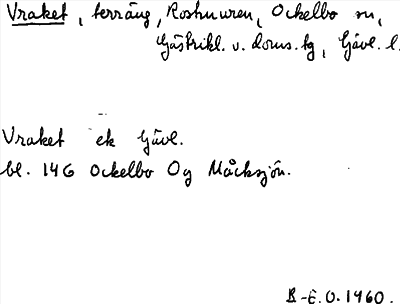 Vraket, terräng, Rosmuren, Ockelbo sn,
Gästrikl. v. doms.tg, Gävl. l.
Vraket ek Gävl.
bl. 14G Ockelbo Og Måcksjön.
B-E.O. 1960.